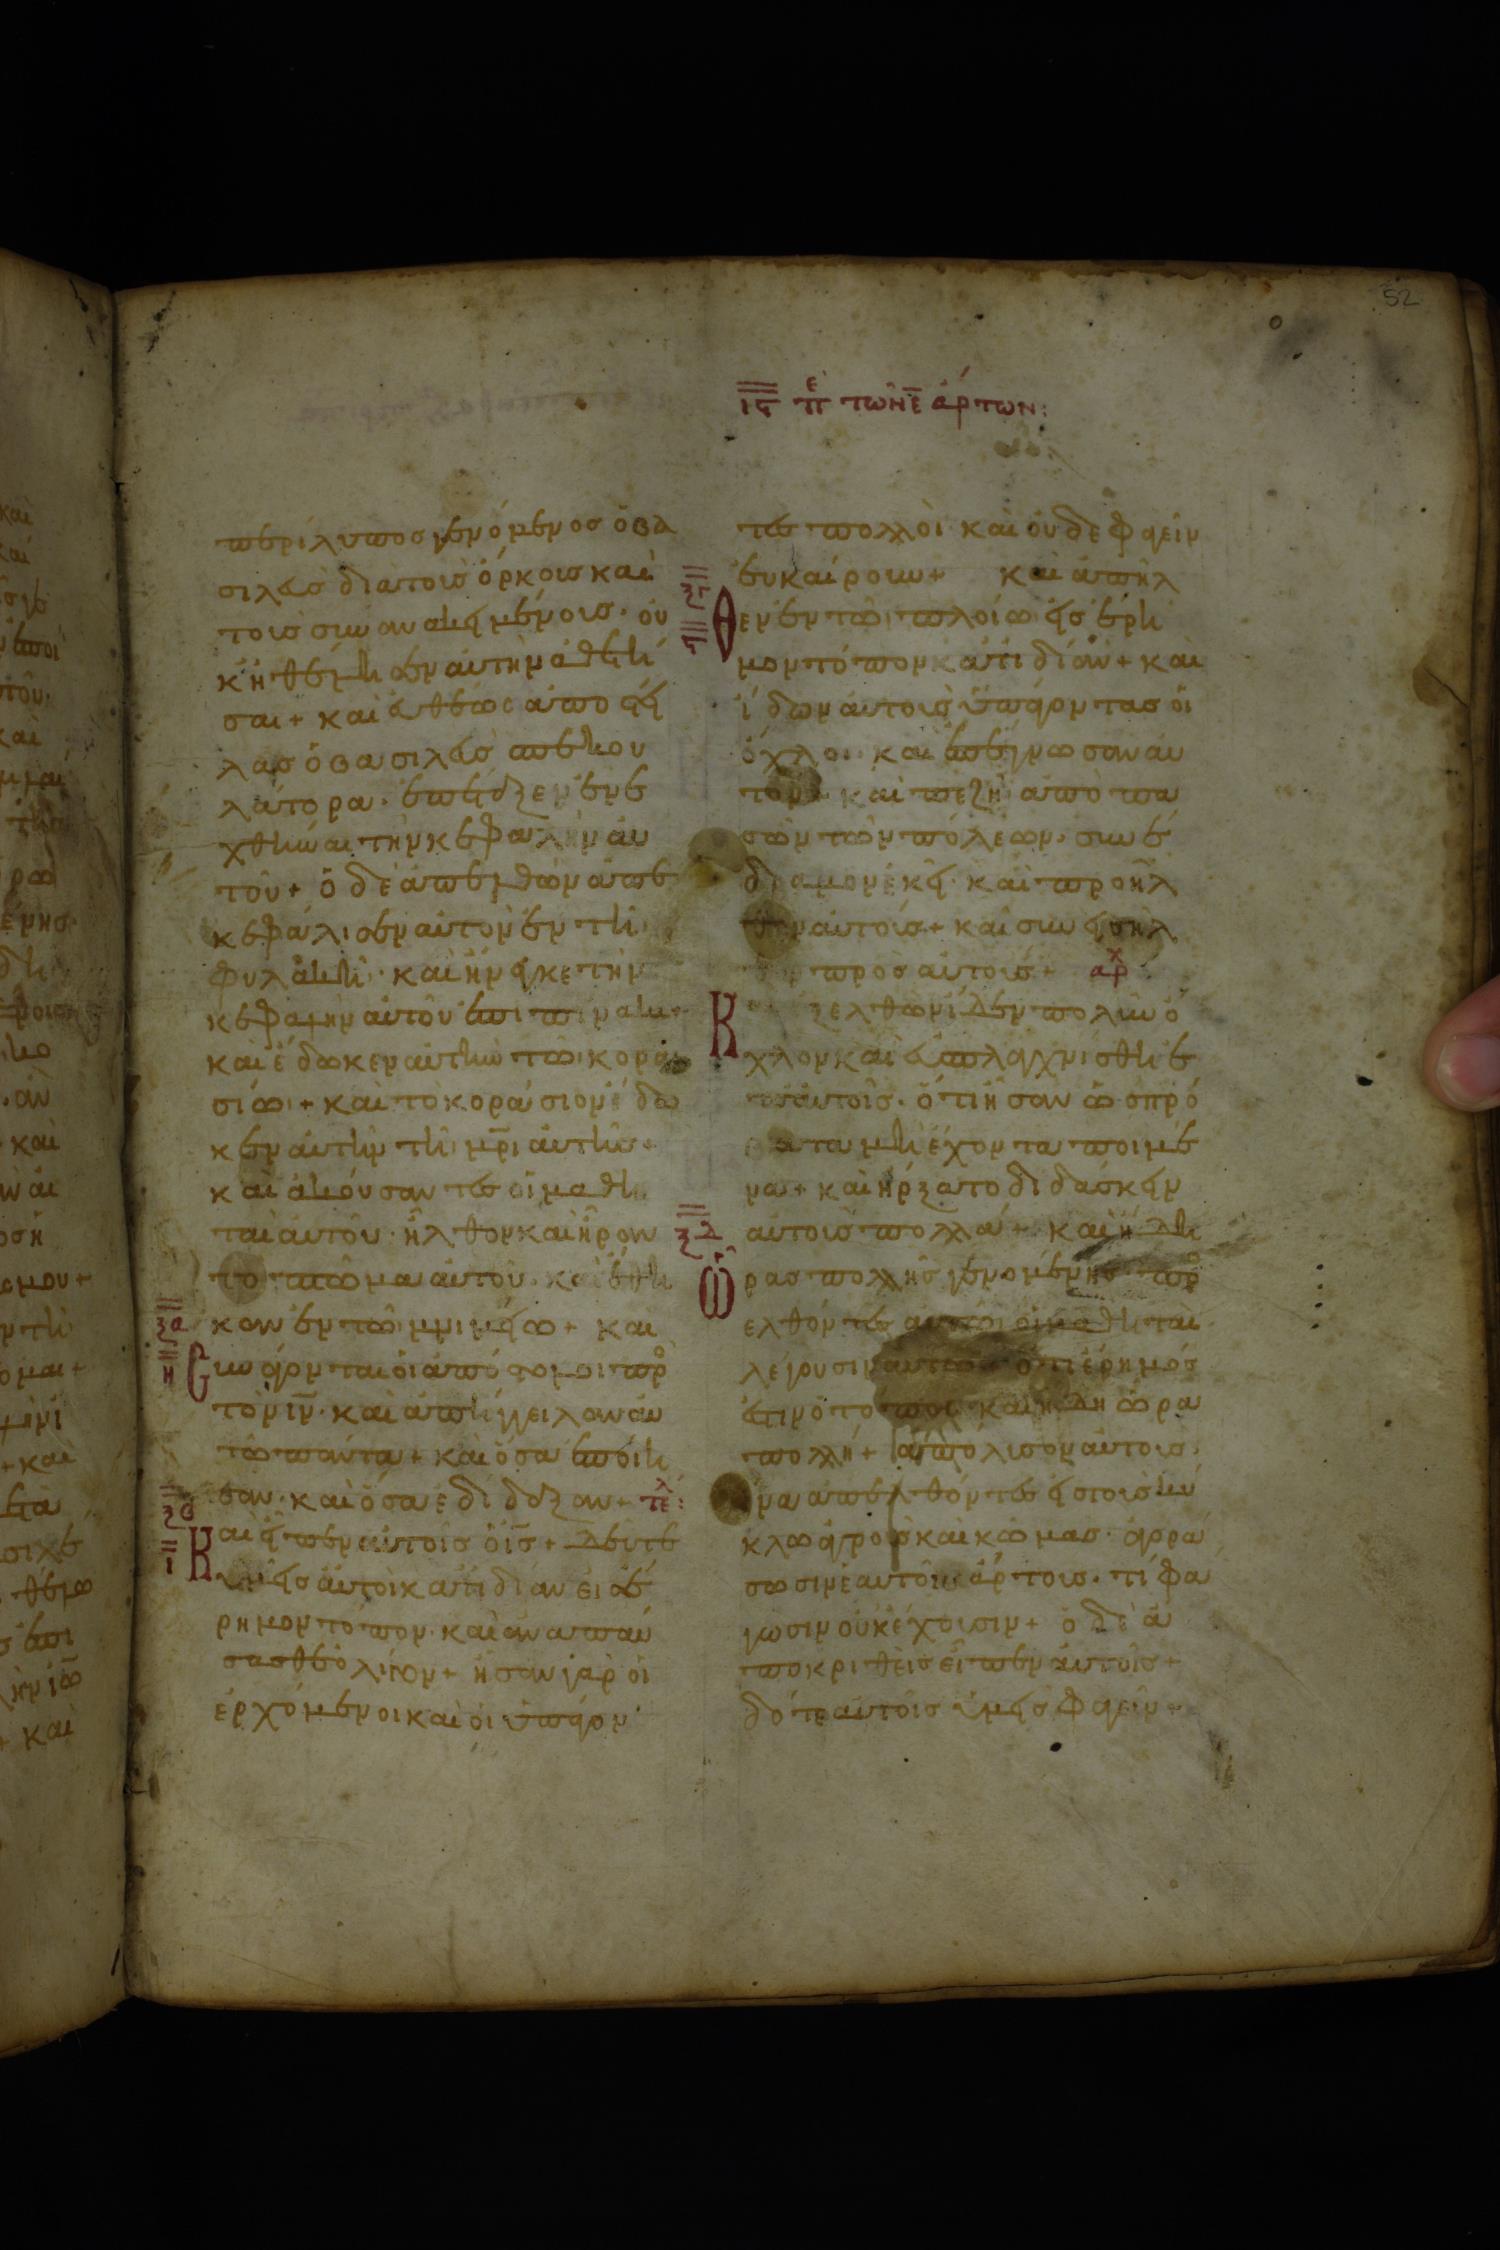 52
ιϛ πε τῶν ε̄ ἄρτων:
περίλυπος γενόμενος ὁ βα
σιλεὺς διὰ τοὺς ὅρκους καὶ
τοὺς συνανακειμένους· οὐ
κ ἠθέλησεν αὐτὴν ἀθετῆ
σαι + καὶ εὐθέως ἀποστεί
λας ὁ βασιλεὺς σπεκου
λάτορα· ἐπέταξεν ἐνε
χθῆναι τὴν κεφαλὴν αὐ
τοῦ + ὁ δὲ ἀπελθὼν ἀπε
κεφάλισεν αὐτὸν ἐν τῆ
φυλακῆ· καὶ ἤνεγκε τὴν
κεφαλὴν αὐτοῦ ἐπὶ πίνακι·
καὶ ἔδωκεν αὐτὴν τῶ κορα
σίω + καὶ τὸ κοράσιον ἔδω
κεν αὐτὴν τῆ μρ̄ι αὐτῆς +
καὶ ἀκούσαντες οἱ μαθη
ταὶ αὐτοῦ· ἦλθον καὶ ἦραν
τὸ πτῶμα αὐτοῦ· καὶ ἔθη
καν ἐν τῶ μνημείω + καὶ
ξα η συνάγονται οἱ ἀπόστολοι πρὸ
τὸν ιν̄· καὶ ἀπήγγειλαν αὐ
τῶ πάντα + καὶ ὅσα ἐποίη
σαν· καὶ ὅσα ἐδίδαξαν + τελ:
ξβ ι Καὶ εἶπεν αὐτοῖς ὁ ις̄ + δεῦτε
ὑμεῖς αὐτοὶ κατιδίαν εἰς ἔ
ρημον τόπον· καὶ ἀναπαύ
σασθε ὀλίγον + ἦσαν γὰρ οἱ
ἐρχόμενοι καὶ οἱ ὑπάγον
τες πολλοὶ· καὶ οὐδὲ φαγεῖν
εὐκαίρουν + καὶ ἀπῆλ
ξγ ϛ θεν ἐν τῶ πλοίω εἰς ἔρη
μον τόπον κατιδίαν + καὶ
ἰδὼν αὐτοὺς ὑπάγοντας οἱ
ὄχλοι· καὶ ἐπέγνωσαν αὐ
τὸν· καὶ πεζῆ ἀπὸ πα
σῶν τῶν πόλεων· συνέ
δραμον ἐκεῖ· καὶ προῆλ
θον αὐτούς + καὶ συνεισῆλ
πρὸς αὐτούς + αρχ
Κ ξελθὼν ἴδεν πολὺν ὄ
χλον καὶ ἐσπλαγχνίσθη ἐ
π αὐτοῖς· ὅτι ἦσαν ὡς πρό
βατα μὴ ἔχοντα ποιμέ
να + καὶ ἤρξατο διδάσκειν
αὐτοὺς πολλά + καὶ ἤδη
ξδ ὥρας πολλῆς γενομένης· προσ
ελθόντες αὐτῶ οἱ μαθηταὶ
λέγουσιν αὐτῶ· ὅτι ἔρημός
ἐστιν ὁ τόπος· καὶ ἤδη ὥρα
πολλή + ἀπόλυσον αὐτούς·
ἵνα ἀπελθόντες εἰς τοὺς κύ
κλω ἀγροὺς καὶ κώμας· ἀγορά
σωσιν ἑαυτοῖς ἄρτους· τί φά
γωσιν οὐκ ἔχουσιν + ὁ δὲ ἀ
ποκριθεὶς εἶπεν αὐτοῖς +
δότε αὐτοῖς ὑμεῖς φαγεῖν +